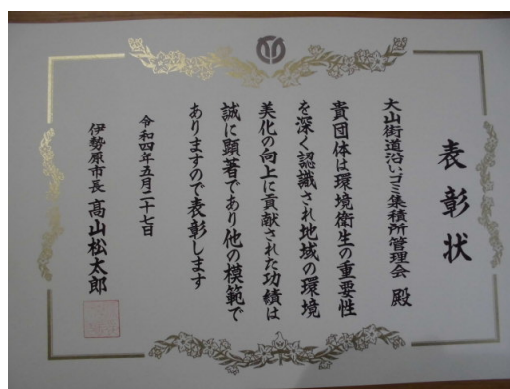 表彰状
大山街道沿いゴミ集積所管理会 殿
貴団体は環境衛生の重要性
を深く認識され地域の環境
美化の向上に貢献された功績は
誠に顕著であり他の模範で
ありますので表彰します
令和四年五月二十七日
伊勢原市長 高山松太郎